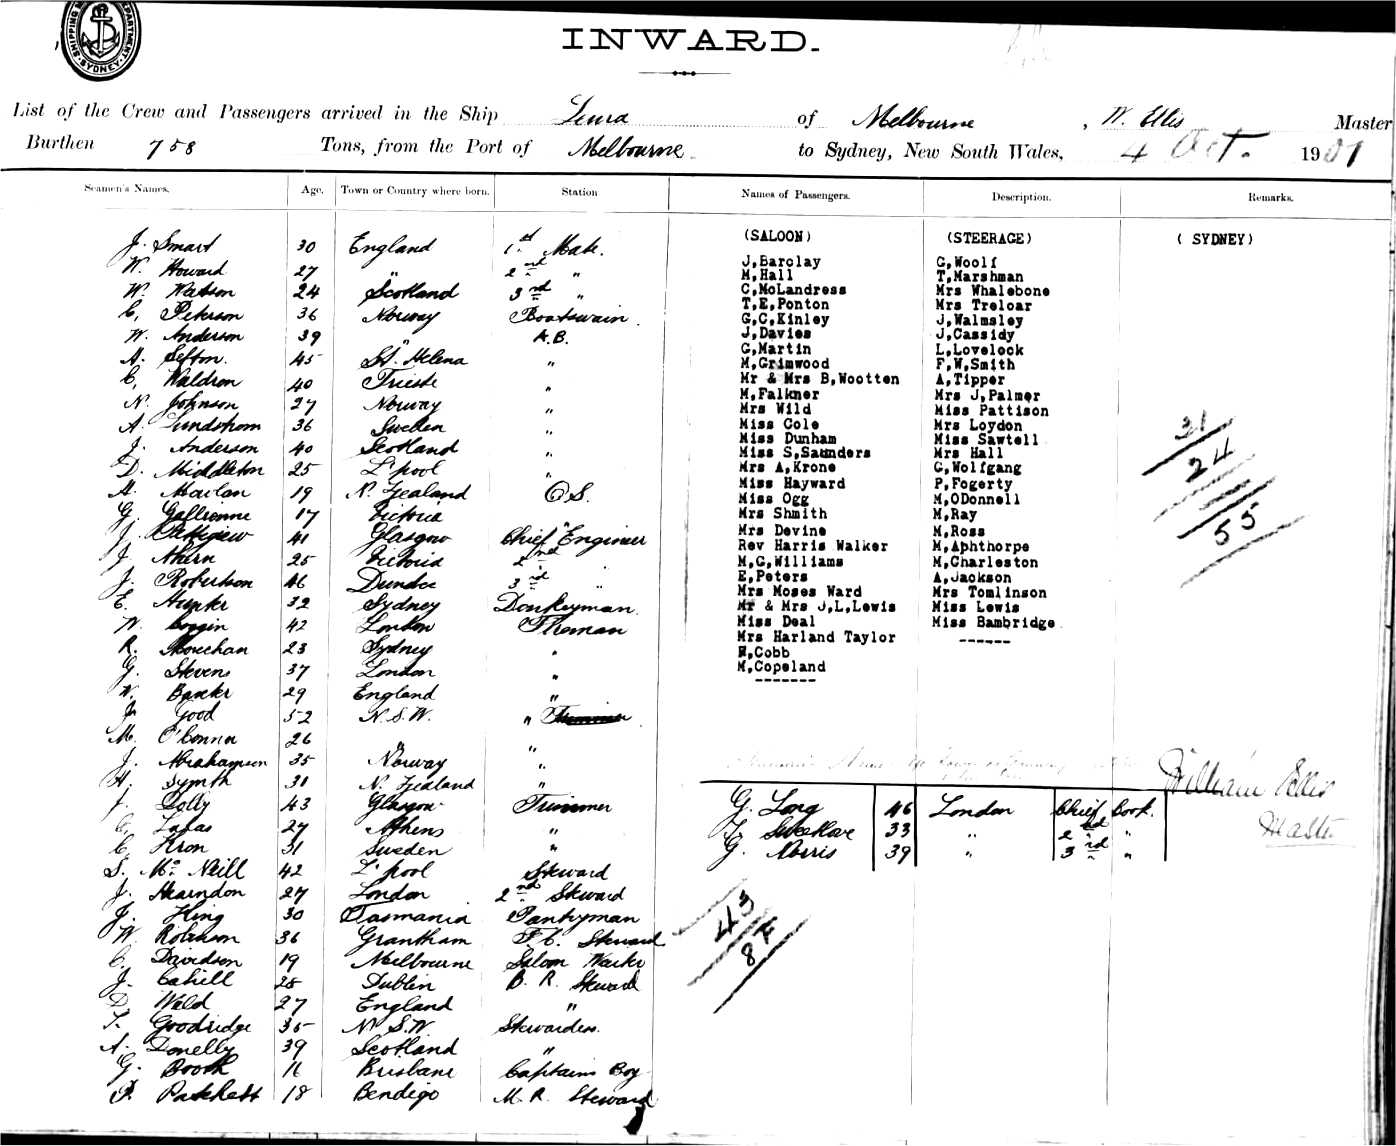 SHIPPING DEPARTMENT. SYDNEY.
INWARD.
List of the Crew and Passengers arrived in the Ship Leura of Melbourne, W. Ellis Master
Burthen 758 Tons, from the Port of Melbourne to Sydney, New South Wales, 4 Oct. 1901
Seamen's Names. Age. Town or Country where born. Station
J. Smart 30 England 1st Mate.
W. Howard 27 " 2nd "
W. Watson 24 Scotland 3rd "
C. Peterson 36 Norway Boatswain.
W. Anderson 39 " A.B.
A. Sefton. 45 St. Helena "
C. Waldron 40 Trieste "
N. Johnson 27 Norway "
A. Lundstrom 36 Sweden "
J. Anderson 40 Scotland "
D. Middleton 25 L'pool "
A. 19 N. Zealand O.S.
G. 17 Victoria "
J. Pettigrew 41 Glasgow Chief Engineer
J. Ahern 25 Victoria 2nd "
J. Robertson 46 Dundee 3rd "
E. Hunter 32 Sydney Donkeyman.
W. Coggin 42 London Fireman
R. 23 Sydney "
G. Stevens 37 London "
W. 29 England "
J. Good 52 N.S.W. " Trimmer
M. O'Connor 26 " "
J. Abrahamson 35 Norway "
H. Symth 31 N. Zealand "
J. Jolly 43 Glasgow Trimmer
C. 27 Athens "
C. Kron 31 Sweden "
S. McNeill 42 L'pool Steward
J. Hearndon 27 London 2nd Steward
J. King 30 Tasmania Pantryman
W. Robinson 36 Grantham F.C. Steward
C. Davidson 19 Melbourne Saloon Waiter
J. Cahill 25 Dublin B. R. Steward
D. Wald 27 England "
T. Goodridge 35 N.S.W Stewardess.
A. Donelly 39 Scotland "
G. Booth 16 Brisbane Captains Boy
F. 18 Bendigo M. R. Steward
Names of Passengers. Description. Remarks.
(SALOON)
J,Barclay
M,Hall
C,McLandress
T,E,Ponton
G,C,Kinley
J,Davies
G,Martin
M,Grimwood
Mr & Mrs B,Wootten
M,Falkner
Mrs Wild
Miss Cole
Miss Dunham
Miss S,Saunders
Mrs A,Krone
Miss Hayward
Miss Ogg
Mrs Shmith
Mrs Devine
Rev Harris Walker
M,G,Williams
E,Peters
Mrs Moses Ward
Mr & Mrs J,L,Lewis
Miss Deal
Mrs Harland Taylor
R,Cobb
M,Copeland
-------
(STEERAGE)
G,Woolf
T,Marshman
Mrs Whalebone
Mrs Treloar
J,Walmsley
J,Cassidy
L,Lovelock
F,W,Smith
A,Tipper
Mrs J,Palmer
Miss Pattison
Mrs Loydon
Miss Sawtell
Mrs Hall
G,Wolfgang
P,Fogerty
M,ODonnell
M,Ray
M,Ross
M,Aphthorpe
M,Charleston
A,Jackson
Mrs Tomlinson
Miss Lewis
Miss Bambridge
------
( SYDNEY)
31
24
55
G. Long 46 London Chief Cook.
33 " 2nd "
G. Norris 39 " 3rd "
William Ellis
Master
43